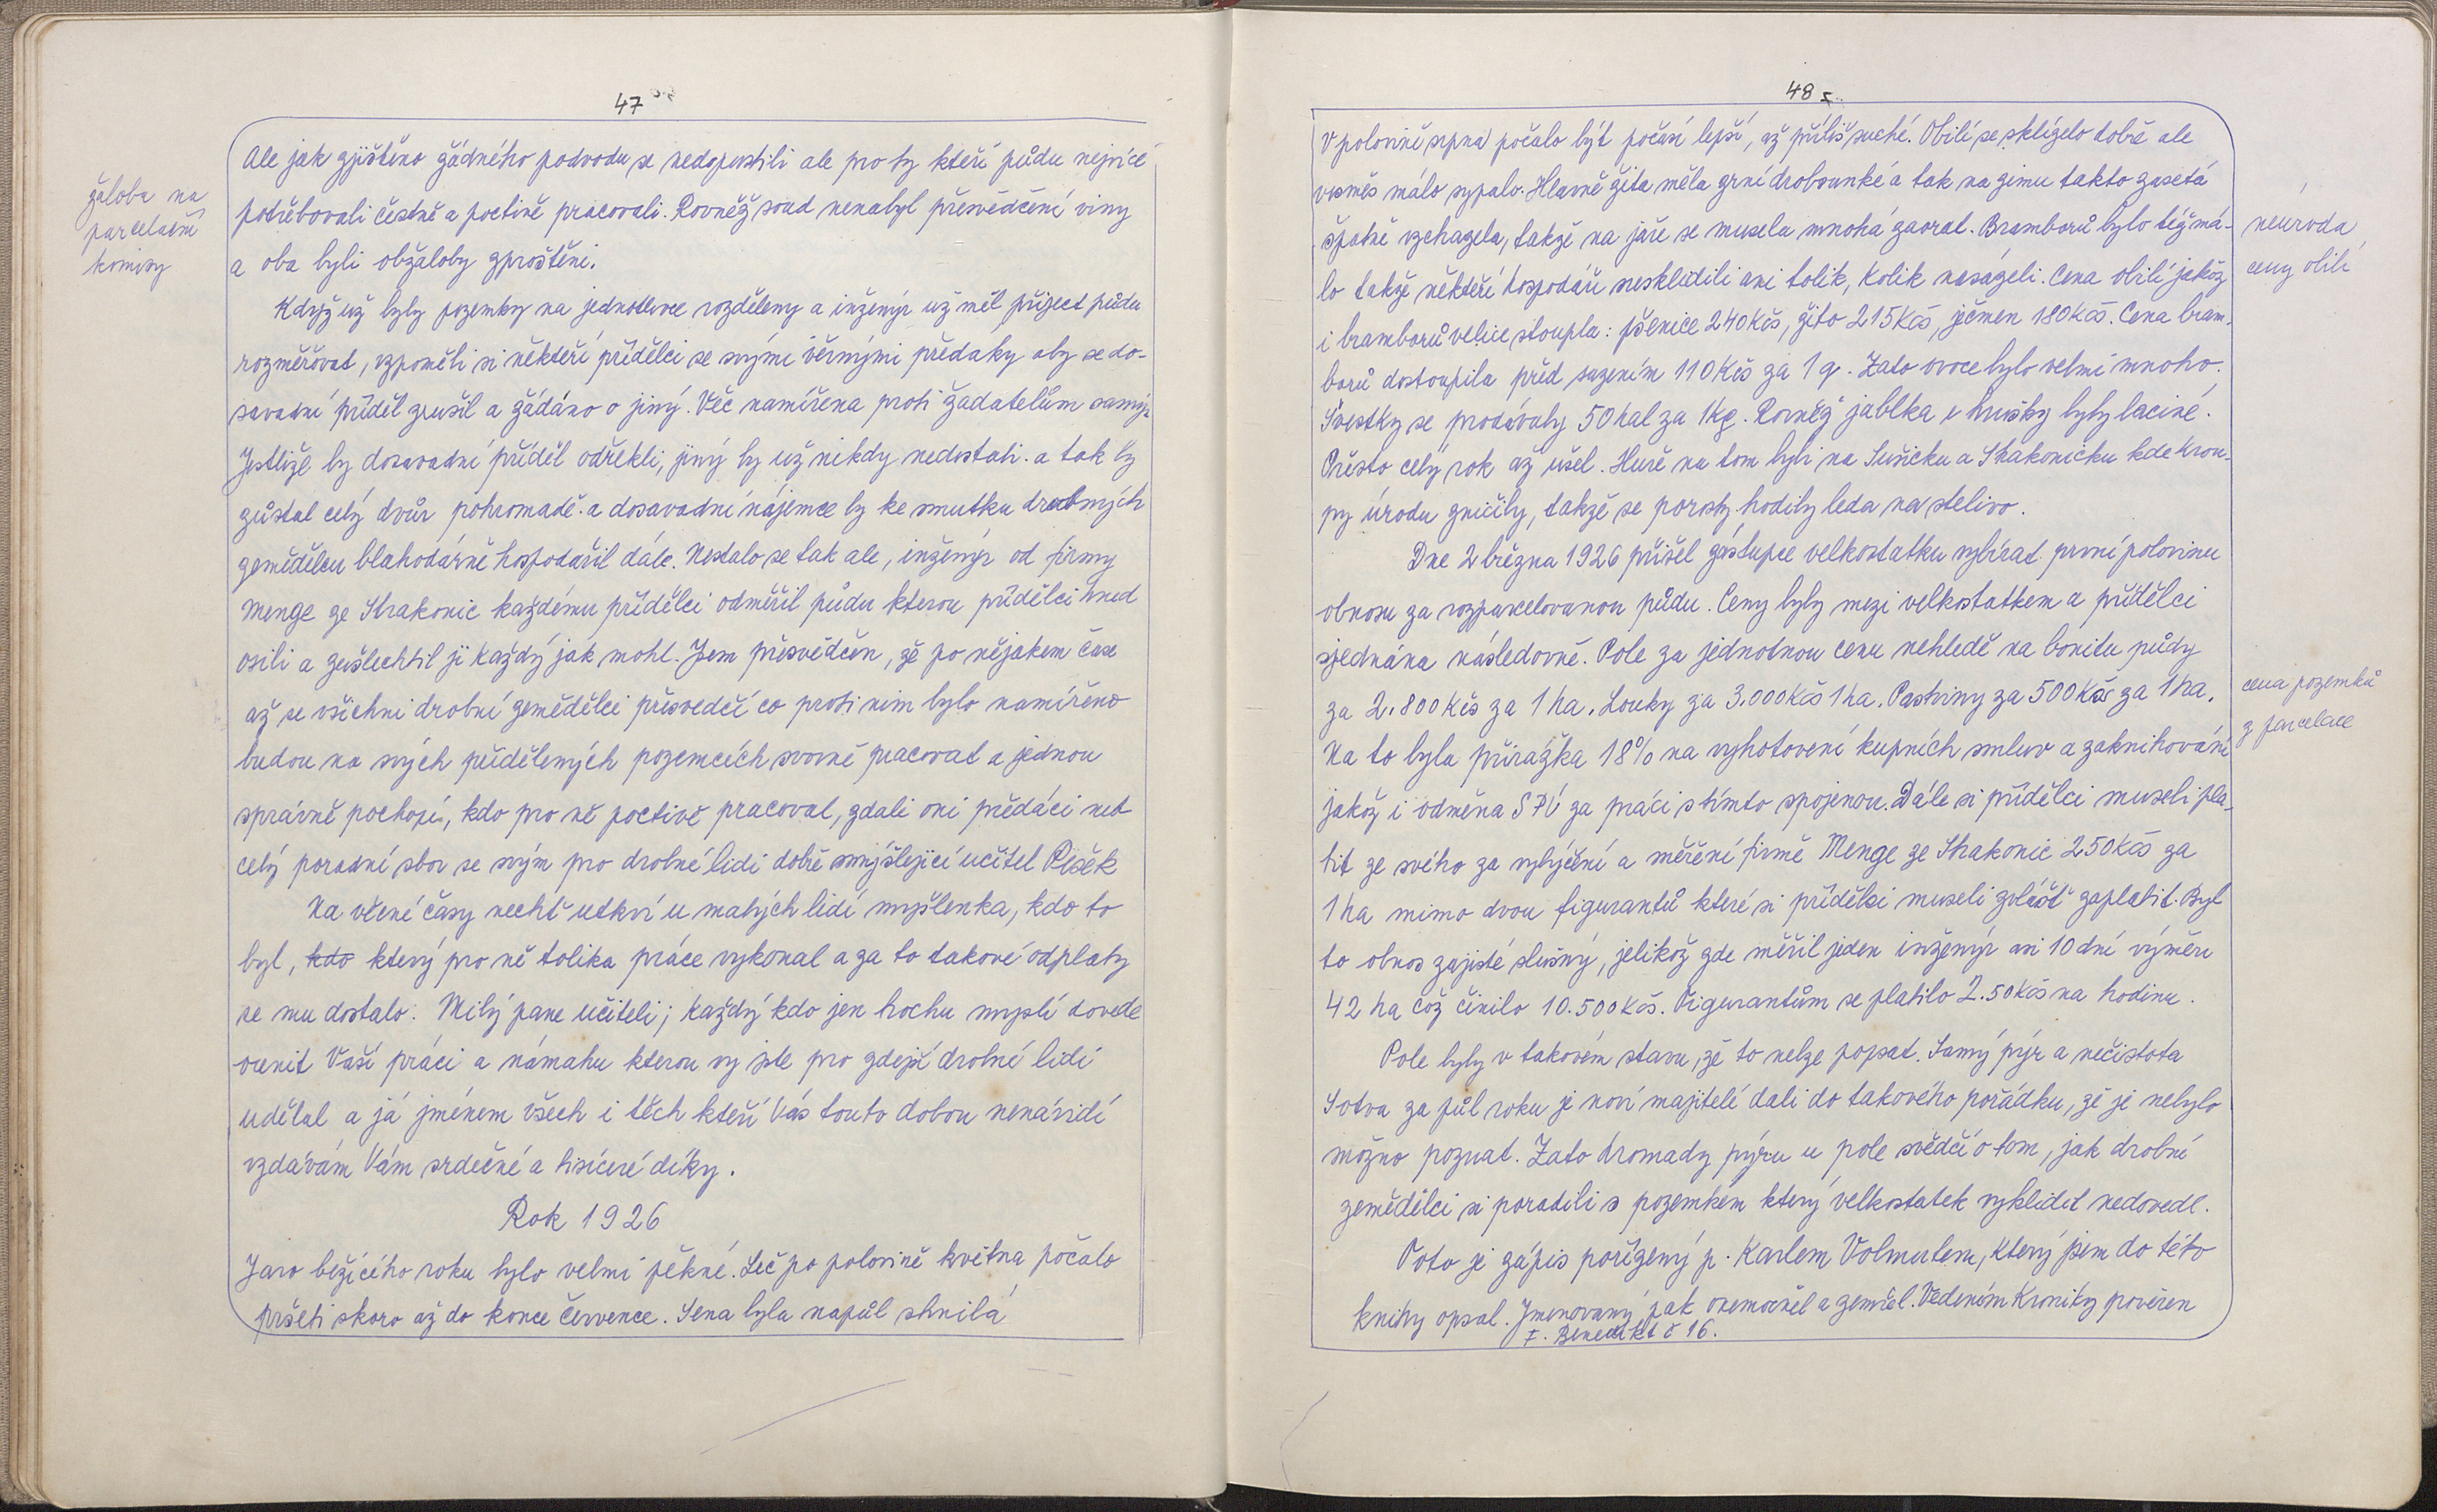 47
žaloba na
parcelační
komisy
Ale jak zjištěno žádného podvodu se nedopustili ale pro ty kteří půdu nejvíce
potřebovali čestně a poctivě pracovali. Rovněž soud nenabyl přesvědčení viny
a oba byli obžaloby zproštěni.
Když už byly pozemky na jednotlivce rozděleny a inženýr už měl přiject půdu
rozměřovat, vzpoměli si někteří přídělci se svými věrnými předáky aby se do-
savadní příděl zrušil a žádáno o jiný. Věč namířena proti žadatelům samým
Jestliže by dosavadní příděl odřekli, jiný by už nikdy nedostali. a tak by
zůstal celý dvůr pohromadě. a dosavadní nájemce by ke smutku drobných
zemědělcu blahodárně hospodařil dále. Nestalo se tak ale, inženýr od firmy
Menge ze Strakonic každému přídělci odměřil půdu kterou přídělci hned
osili a zušlechtil ji každý jak mohl. Jsem přesvědčen, že po nějakem čase
až se všichni drobní zemědělci přesvedčí co proti nim bylo namířeno
budou na svých přidělených pozemcích svorně pracovat a jednou
správně pochopí, kdo pro ně poctivě pracoval, zdali oni předáci neb
celý poradní sbor se svým pro drobné lidi dobře smýšlející učitel Pěšek
Na věčné časy nechť utkví u malých lidí myšlenka, kdo to
byl, kdo který pro ně tolika práce vykonal a za to takové odplaty
se mu dostalo. Milý pane učiteli; každý kdo jen trochu myslí dovede
ocenit Vaší práci a námahu kterou vy jste pro zdejší drobné lidi
udělal a já jménem všech i těch kteří Vás touto dobou nenávidí
vzdávám Vám srdečné a tisíceré díky.
Rok 1926
Jaro běžícího roku bylo velmi pěkné. Leč po polovině května počalo
pršeti skoro až do konce července. Sena byla napůl shnilá
48
V polovině srpna počalo být počasí lepší, až příliš suché. Obilí se sklízelo dobře ale
vesměs málo sypalo. Hlavně žita měla zrní drobounké a tak na zimu takto zasetá
špatně vzchazela, takže na jaře se musela mnohá zaorat. Bramborů bylo též má-
lo takže někteří hospodáři nesklidili ani tolik, kolik nasázeli. Cena obilí jakož
i bramborů velice stoupla: pšenice 240 Kčs, žito 215 Kčs, ječmen 180 Kčs. Cena bram-
borů dostoupila před sazením 110 Kčs za 1 q. Zato ovoce bylo velmi mnoho.
Švestky se prodávaly 50 hal za 1 kg. Rovněž jablka i hrušky byly laciné.
Přesto celý rok až ušel. Huře na tom byli na Sušicku a Strakonicku kde krou-
py úrodu zničily, takže se porosty hodily leda na stelivo.
Dne 2 března 1926 přišel zástupce velkostatku vybírat první polovinu
obnosu za rozparcelovanou půdu. Ceny byly mezi velkostatkem a přídělci
sjednána následovně. Pole za jednotnou cenu nehledě na bonitu půdy
za 2.800 Kčs za 1 ha. Louky za 3.000 Kčs 1 ha. Pastviny za 500 Kčs za 1 ha.
Na to byla přirážka 18% na vyhotovení kupních smluv a zaknihování
jakož i odměna SPÚ za práci s tímto spojenou. Dále si přídělci museli pla-
tit ze svého za vytýčení a měření firmě Menge ze Strakonic 250 Kčs za
1 ha mimo dvou figurantů které si přídělci museli zvlášť zaplatit. Byl
to obnos zajisté slušný, jelikož zde měřil jeden inženýr asi 10 dní výměru
42 ha což činilo 10.500 Kčs. Figurantům se platilo 2.50 Kčs na hodinu.
Pole byly v takovém stavu, že to nelze popsat. Samý pýr a nečistota
Sotva za půl roku je noví majitelí dali do takového pořádku, že je nebylo
možno poznat. Zato hromady pýru u pole svědčí o tom, jak drobní
zemědělci si poradili s pozemkem který velkostatek vyklidit nedovedl.
Toto je zápis pořízený p. Karlem Volmutem, který jsem do této
knihy opsal. Jmenovaný pak onemocněl a zemřel. Vedením Kroniky pověřen
F. Benedikt č 16.
neuroda
ceny obilí
cena pozemků
z parcelace